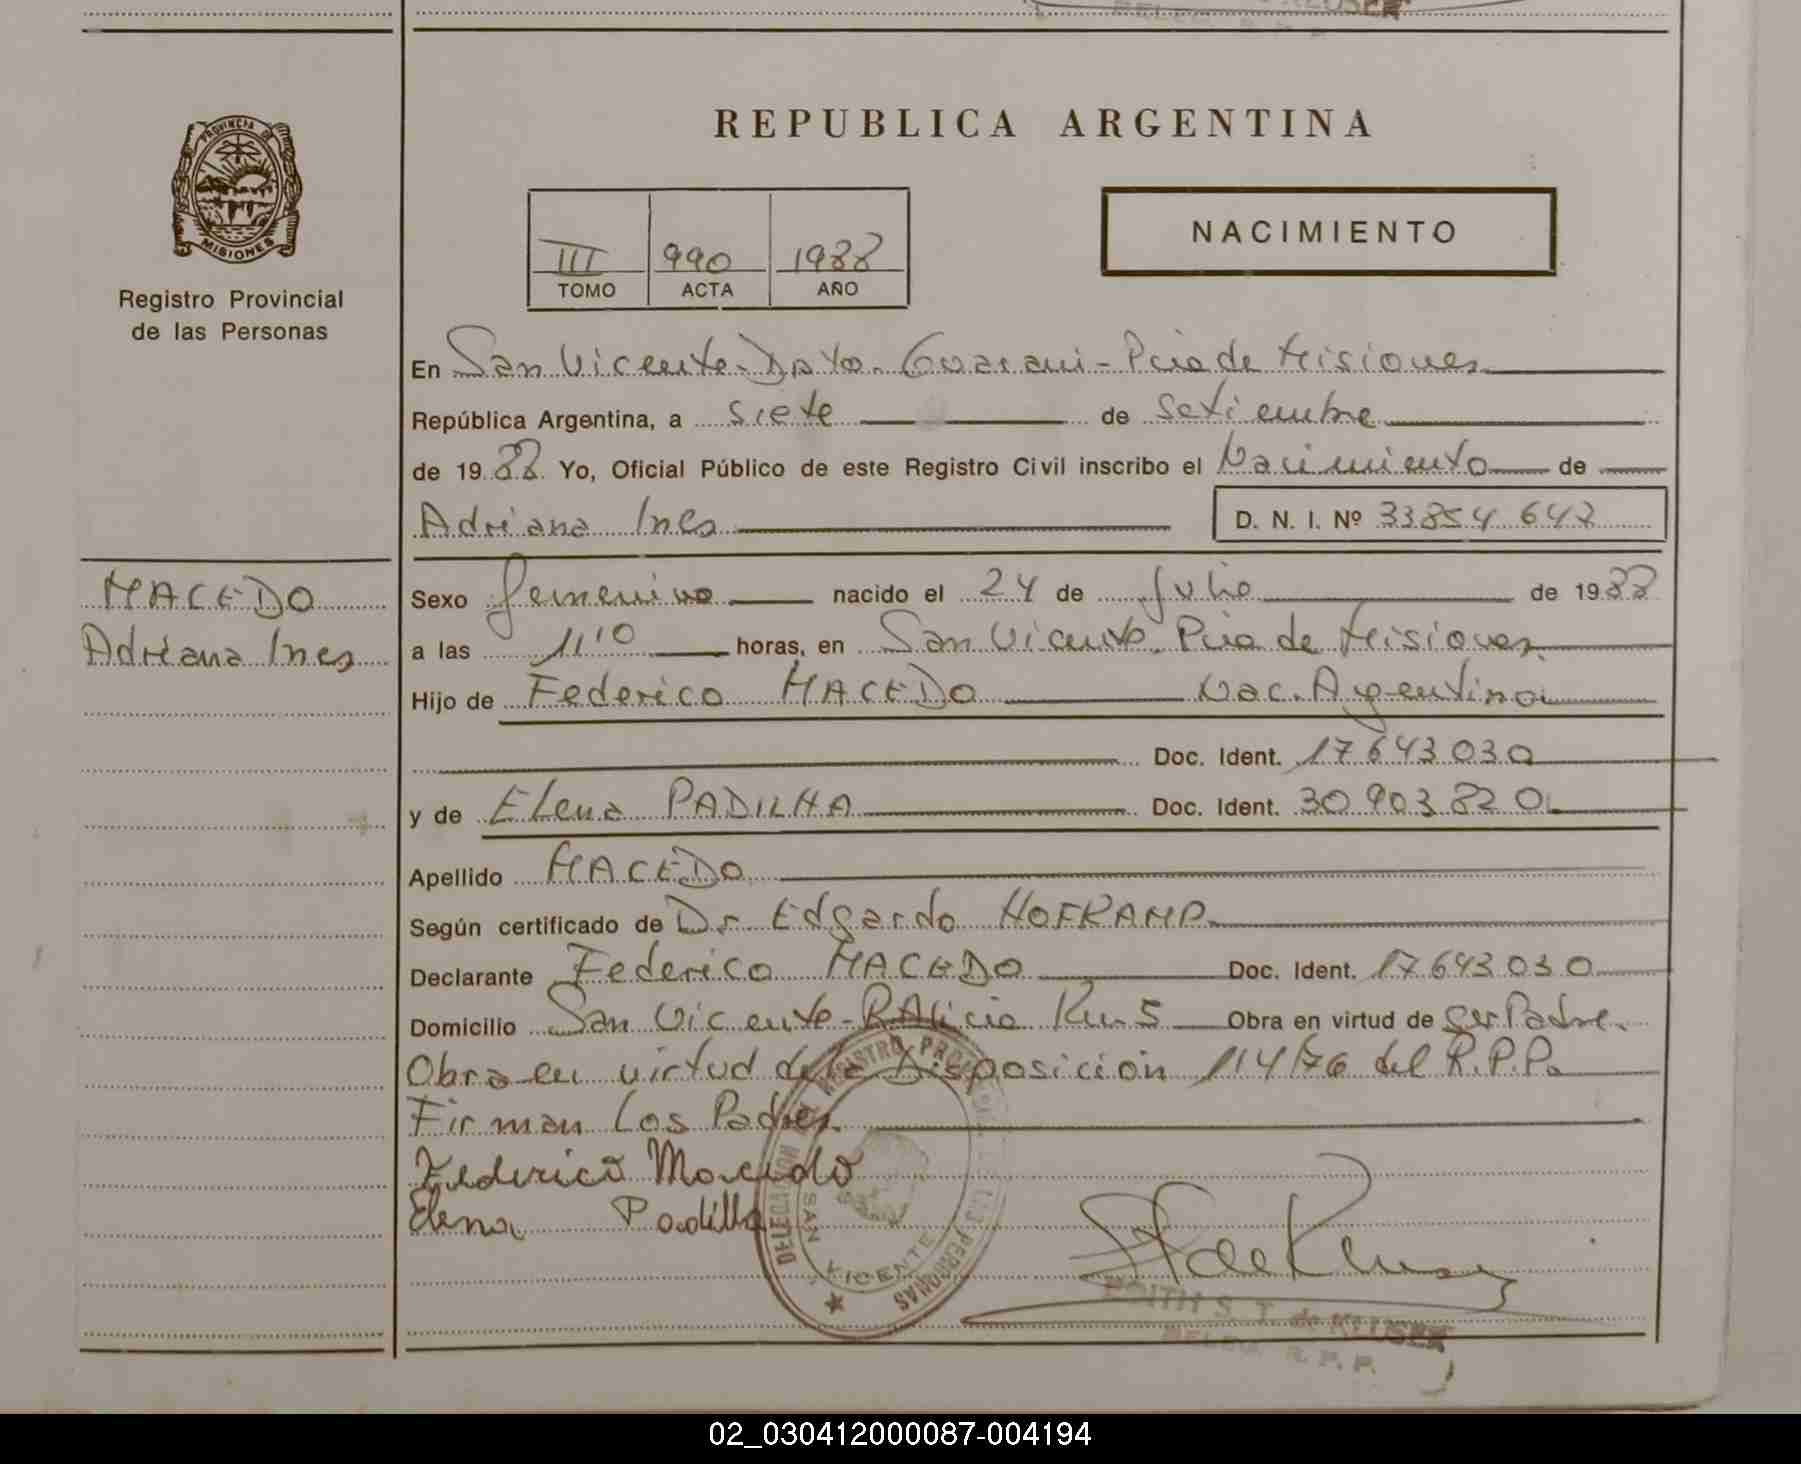 REPUBLICA ARGENTINA
PROVINCIA DE
MISIONES
Registro Provincial
de las Personas
NACIMIENTO
III 990 1988
TOMO ACTA AÑO
En San Vicente-Dpto. Guarani-Pcia de Misiones
República Argentina, a siete de setiembre
de 1988 Yo, Oficial Público de este Registro Civil inscribo el Nacimiento de
Adriana Ines D. N. I. Nº 33854 647
MACEDO
Adriana Ines
Sexo femenino nacido el 24 de Julio de 1988
a las 11'10 horas, en San Vicente. Pcia de Misiones
Hijo de Federico MACEDO Nac. Argentina
Doc. Ident. 17643030
y de Elena PADILHA Doc. Ident. 30 903 820
Apellido MACEDO
Según certificado de Dr. Edgardo HOFKAMP
Declarante Federico MACEDO Doc. Ident. 17643030
Domicilio San Vicente-P.Alicia Km. 5 Obra en virtud de ser Padre.
Obra en virtud de la Disposicion 114/76 del R.P.P.
Firman Los Padres
Federico Macedo
Elena Padilla
DELEGACION DEL REGISTRO PROVINCIAL DE LAS PERSONAS
SAN VICENTE
EDITH S. T. de KLUSER
DELEG. R. P. P.
02_030412000087-004194